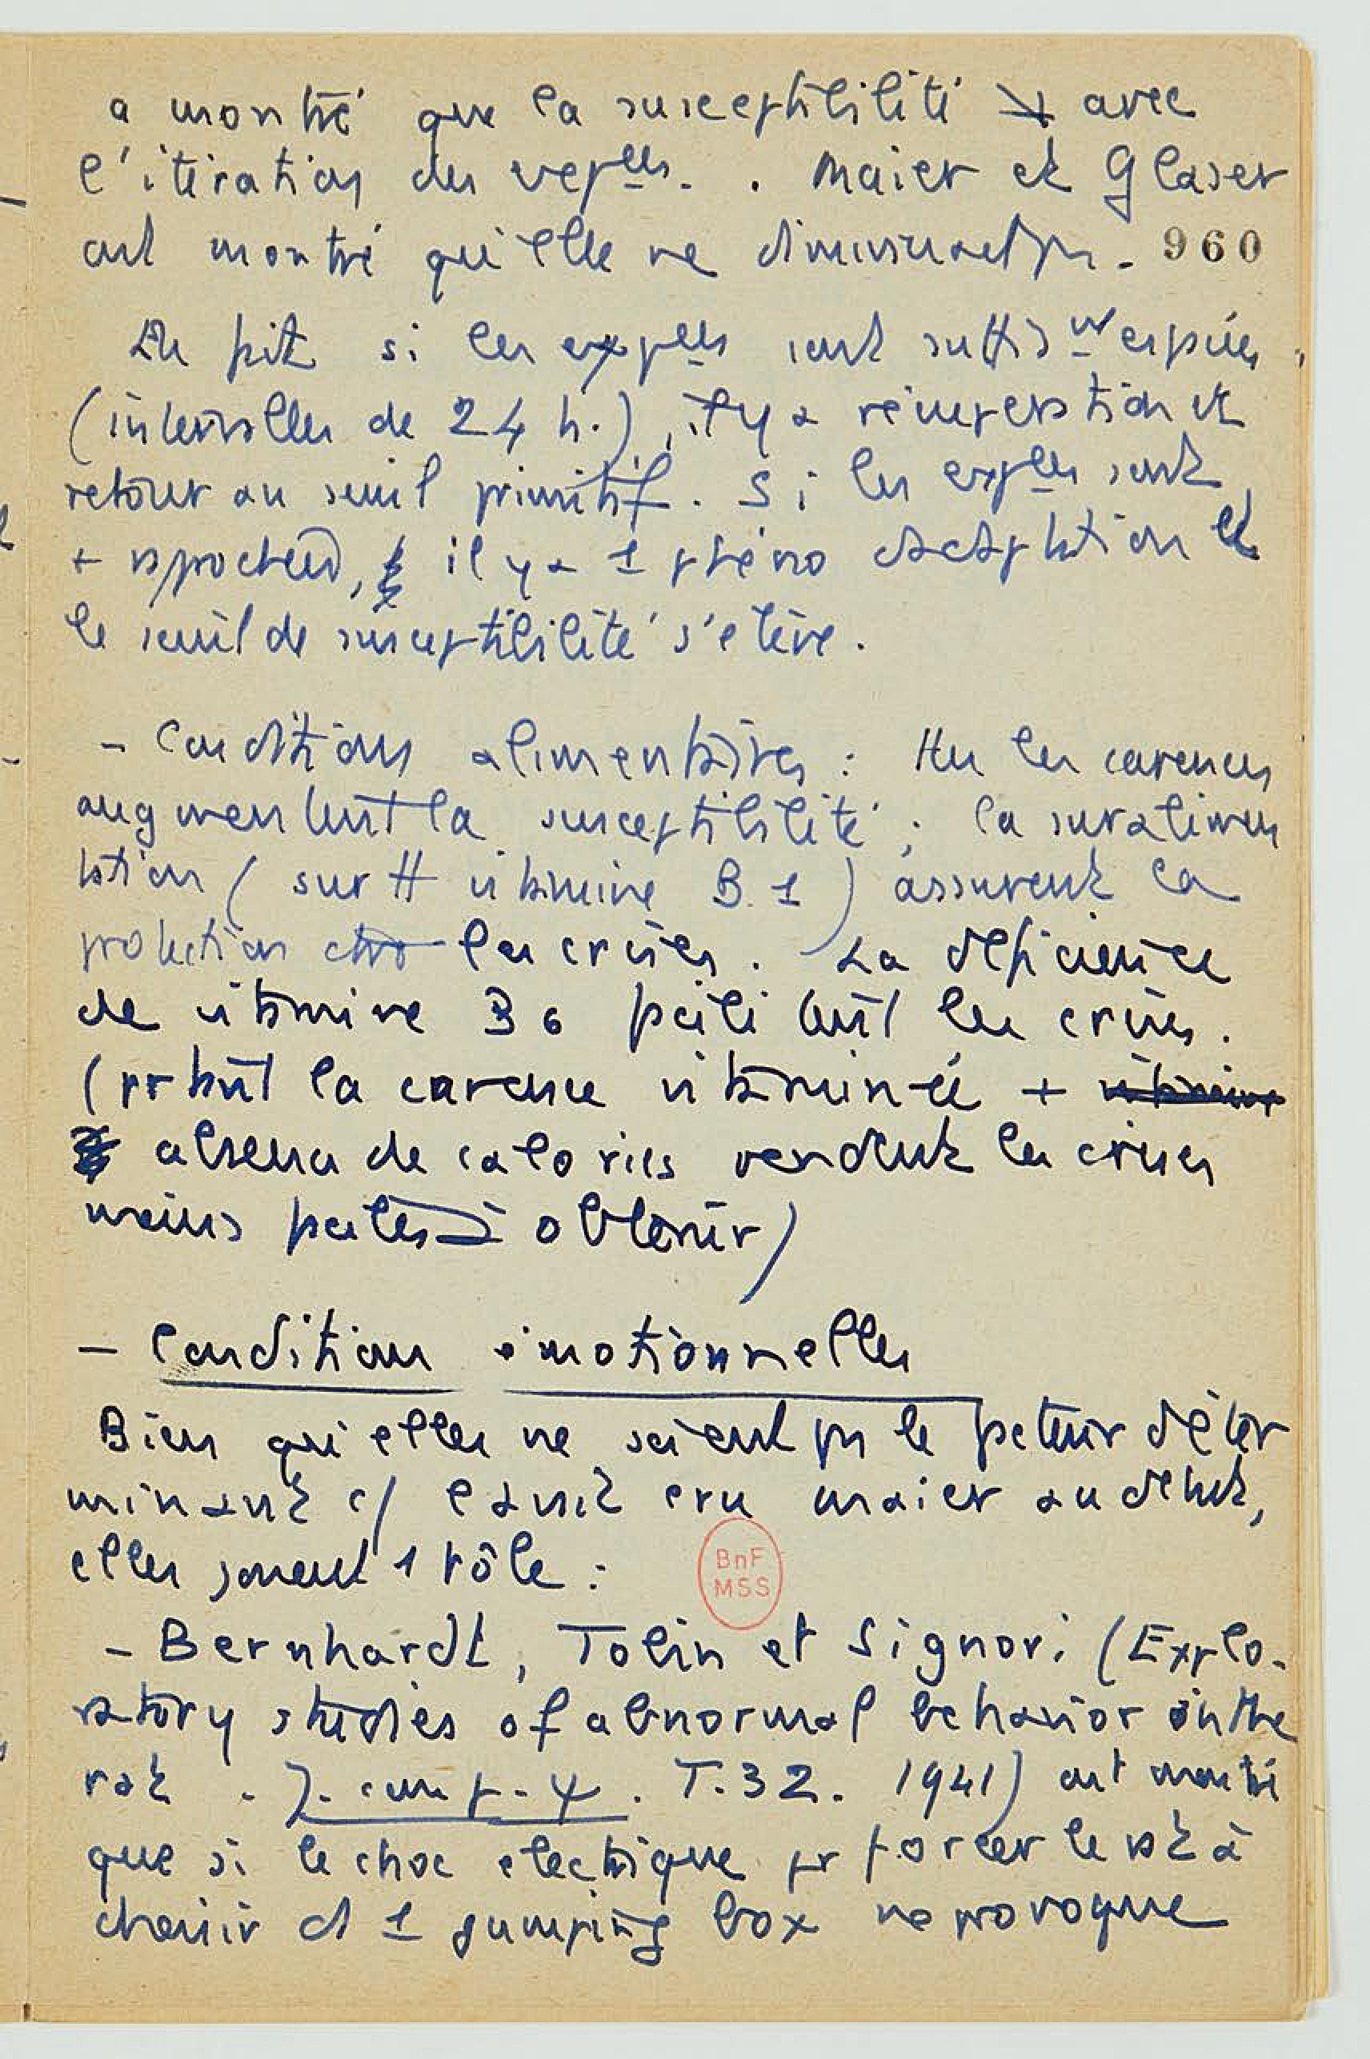 a montré que la susceptibilité ↘ avec
l'itération des exp^ces. . Maier et Glaser
ont montré qu'elle ne diminuait pas.
960
En fait si les exp^ces sont suffis^nt espacées,
(intervalles de 24 h.), il y a récupération et
retour au seuil primitif. Si les exp^ces sont
+ rapprochées, il y a 1 phéno d'adaptation et
le seuil de susceptibilité s'élève.
- Conditions alimentaires : les carences
augmentent la susceptibilité ; la suralimen
tation (surtt vitamine B.1) assurent la
protection ctre les crises. La déficience
de vitamine B6 facilitent les crises.
(prtant la carence vitaminée + vitamine
absence de calories rendent les crises
moins faciles à obtenir)
- Conditions émotionnelles
Bien qu'elles ne soient pas le facteur déter
minant c/ l'avait cru Maier au début,
elles jouent 1 rôle :
BnF
MSS
- Bernhardt, Tolin et Signori (Explo-
ratory studies of abnormal behavior in the
rat . J. comp. ψ. T.32. 1941) ont montré
que si le choc électrique pr forcer le rat à
choisir ds 1 jumping box ne provoque